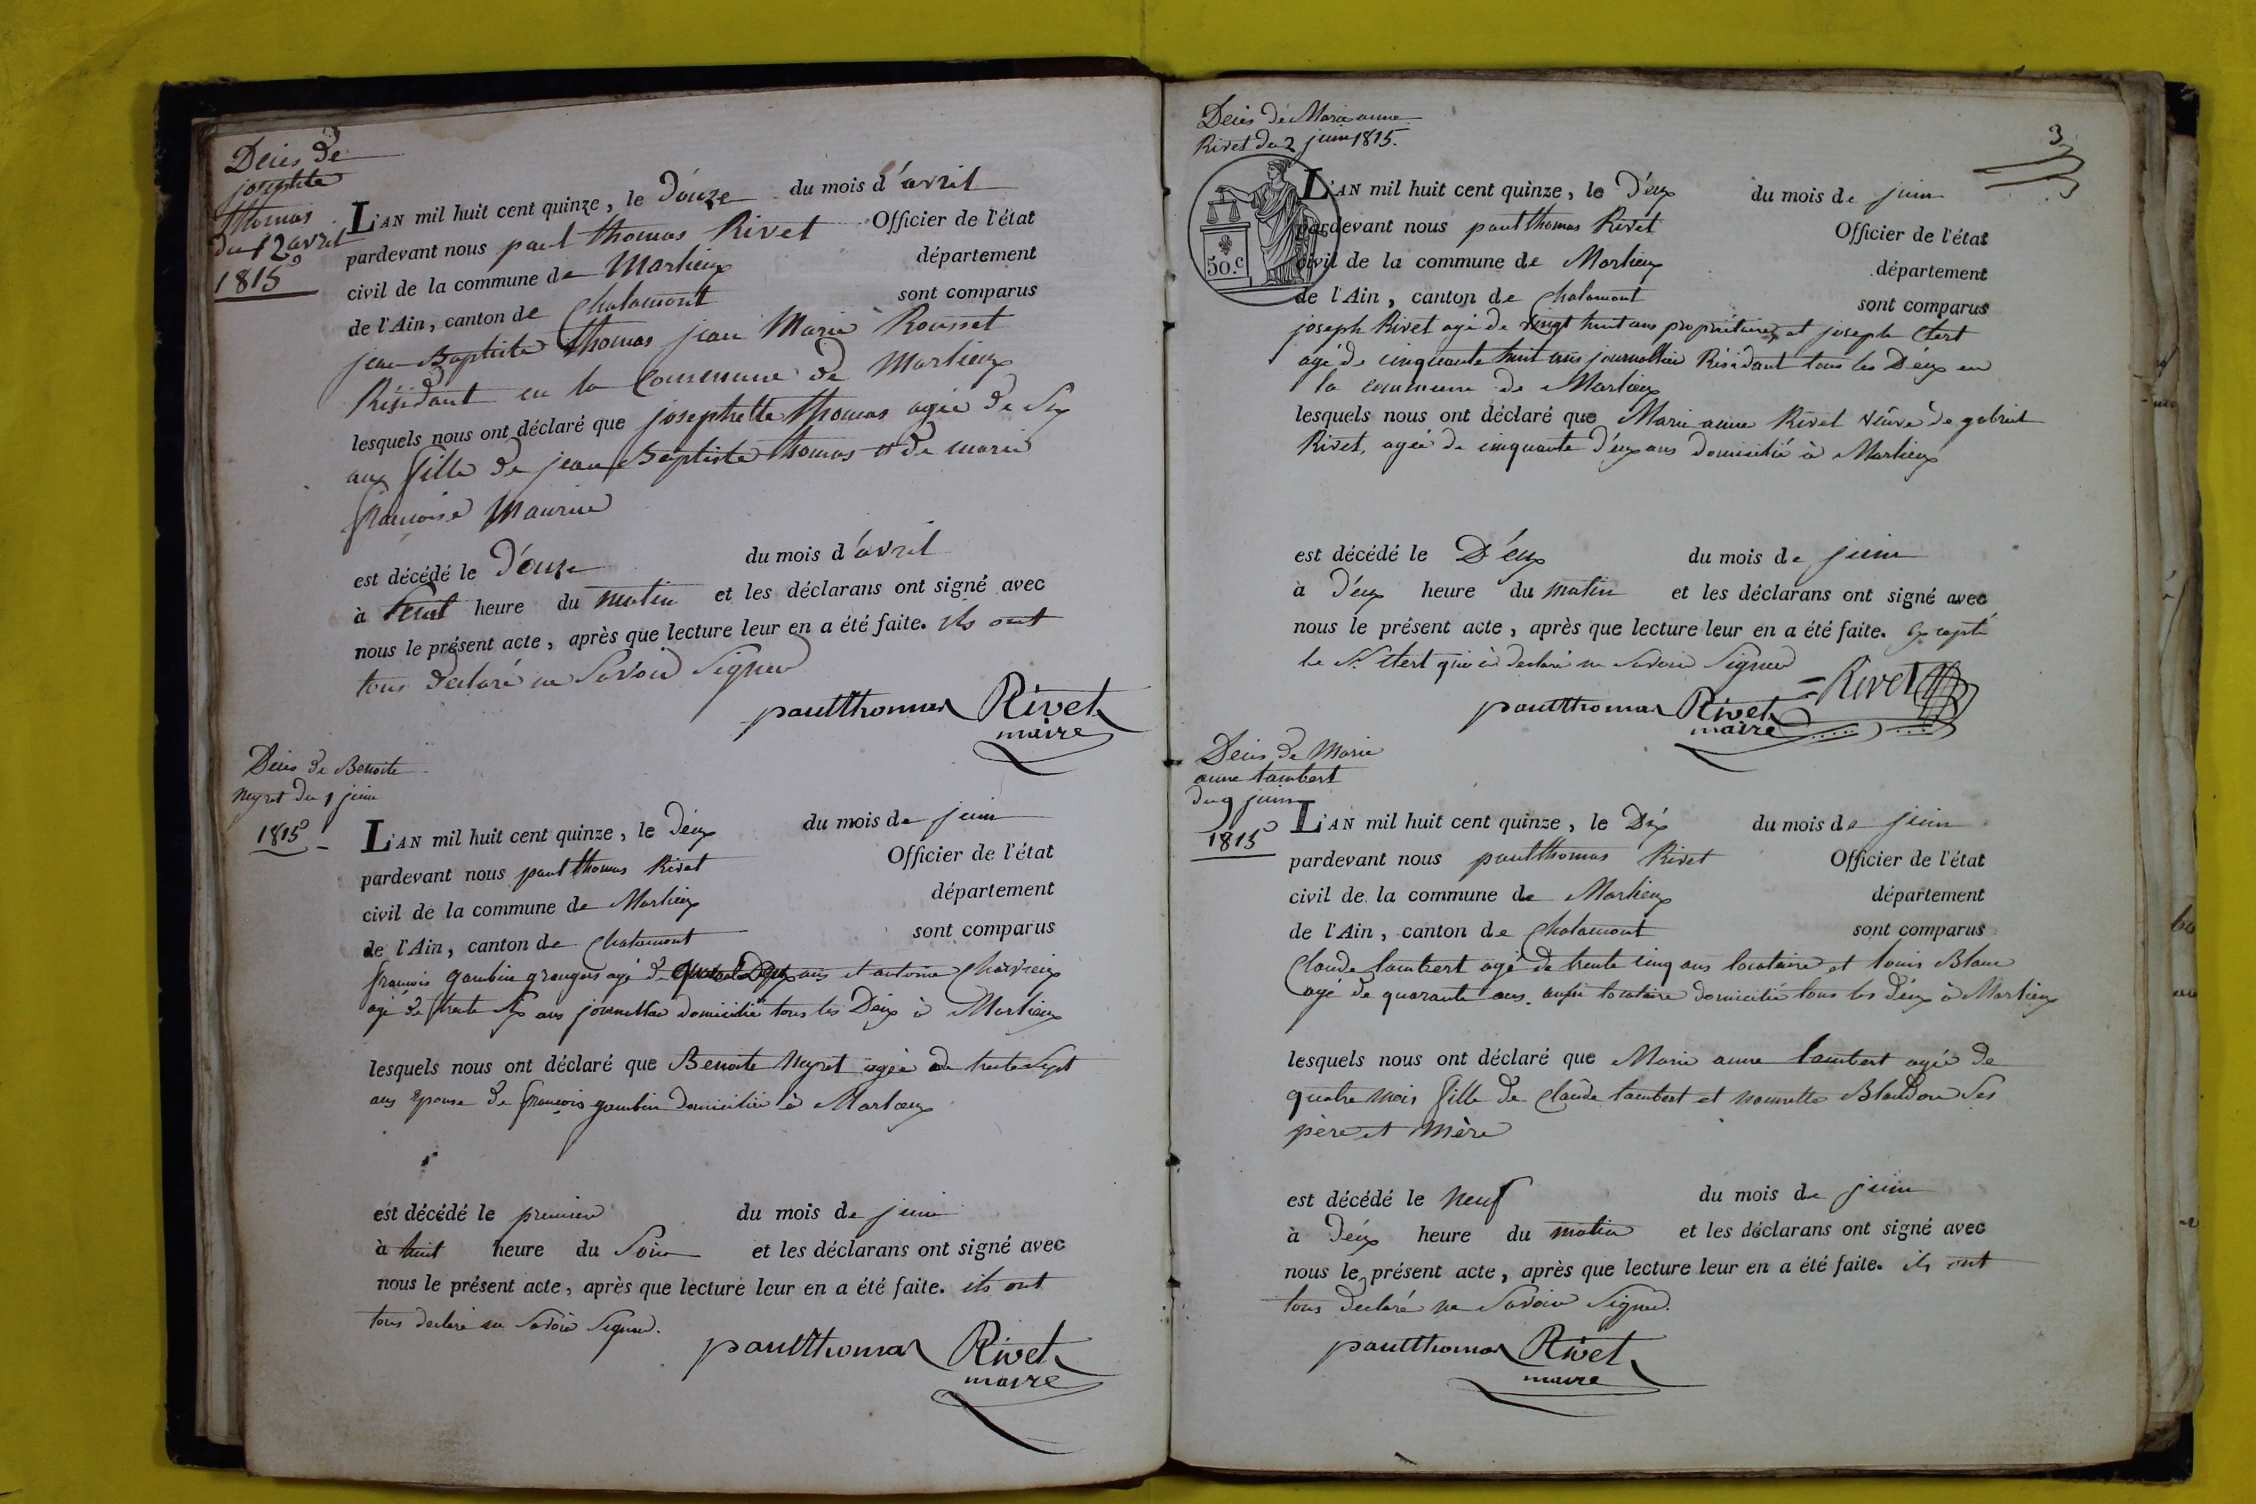 Décès de
josephte
thomas
du 12 avril
1815
L'AN mil huit cent quinze, le Douze du mois d'avril
pardevant nous paul thomas Rivet Officier de l'état
civil de la commune de Marlieux département
de l'Ain, canton de Chalamont sont comparus
jean Baptiste thomas jean Marie Rousset
Résidant en la Commune de Marlieux
lesquels nous ont déclaré que josephette thomas agée de Six
ans fille de jean Baptiste thomas et de marie
françoise Maurice
est décédé le Douze du mois d'avril
à heure du matin et les déclarans ont signé avec
nous le présent acte, après que lecture leur en a été faite. ils ont
tous declaré ne Savoir Signer
paul Thomas Rivet
maire
Décès de Benoite
Neyret du 1 juin
1815
L'AN mil huit cent quinze, le Déux du mois de juin
pardevant nous paul thomas Rivet Officier de l'état
civil de la commune de Marlieux département
de l'Ain, canton de Chalamont sont comparus
françois gambin granger agé de ans et antoine
agé de trente Six ans journallier domicilié tous les Deux à Marlieux
lesquels nous ont déclaré que Benoite Neyret agée de trente Sept
ans Epouse de françois gambin domiciliée à Marlieux
est décédé le premier du mois de juin
à huit heure du Soir et les déclarans ont signé avec
nous le présent acte, après que lecture leur en a été faite. ils ont
tous declaré ne Savoir Signer.
paul Thomas Rivet
maire
Décès de Marie anne
Rivet du 2 juin 1815.
3
50.c
L'AN mil huit cent quinze, le Déux du mois de juin
pardevant nous paul thomas Rivet Officier de l'état
civil de la commune de Marlieux département
de l'Ain, canton de Chalamont sont comparus
joseph Rivet agé de vingt huit ans propriétaire et joseph Clert
agé de cinquante huit ans journallier Résidant tous les Déux en
la commune de Marlieux
lesquels nous ont déclaré que Marie anne Rivet veuve de gabriel
Rivet, agée de cinquante déux ans domicilié à Marlieux
est décédé le Déux du mois de juin
à déux heure du matin et les déclarans ont signé avec
nous le présent acte, après que lecture leur en a été faite. Excepté
le Sr. Clert qui à declaré ne Savoir Signer
Rivet
paul Thomas Rivet
maire
Décès de Marie
anne Lambert
du 9 juin
1815
L'AN mil huit cent quinze, le Dix du mois de juin
pardevant nous paul thomas Rivet Officier de l'état
civil de la commune de Marlieux département
de l'Ain, canton de Chalamont sont comparus
Claude Lambert agé de trente cinq ans locataire et louis Blanc
agé de quarante ans, aussi locataire domicilié tous les déux à Marlieux
lesquels nous ont déclaré que Marie anne Lambert agée de
quatre mois fille de Claude Lambert et Blandon Ses
père et Mère
est décédé le neuf du mois de juin
à Déux heure du matin et les déclarans ont signé avec
nous le présent acte, après que lecture leur en a été faite. ils ont
tous declaré ne Savoir Signer.
paul Thomas Rivet
maire